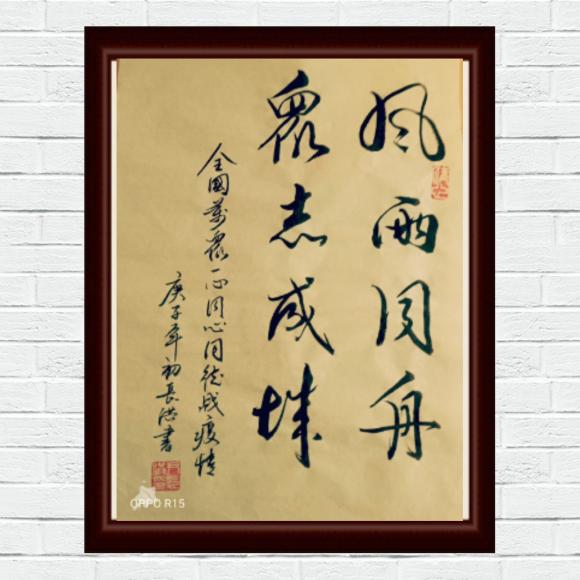 风雨同舟
眾志成城
全國萬眾一心同心同德战疫情
庚子年初長洪書
OPPO R15